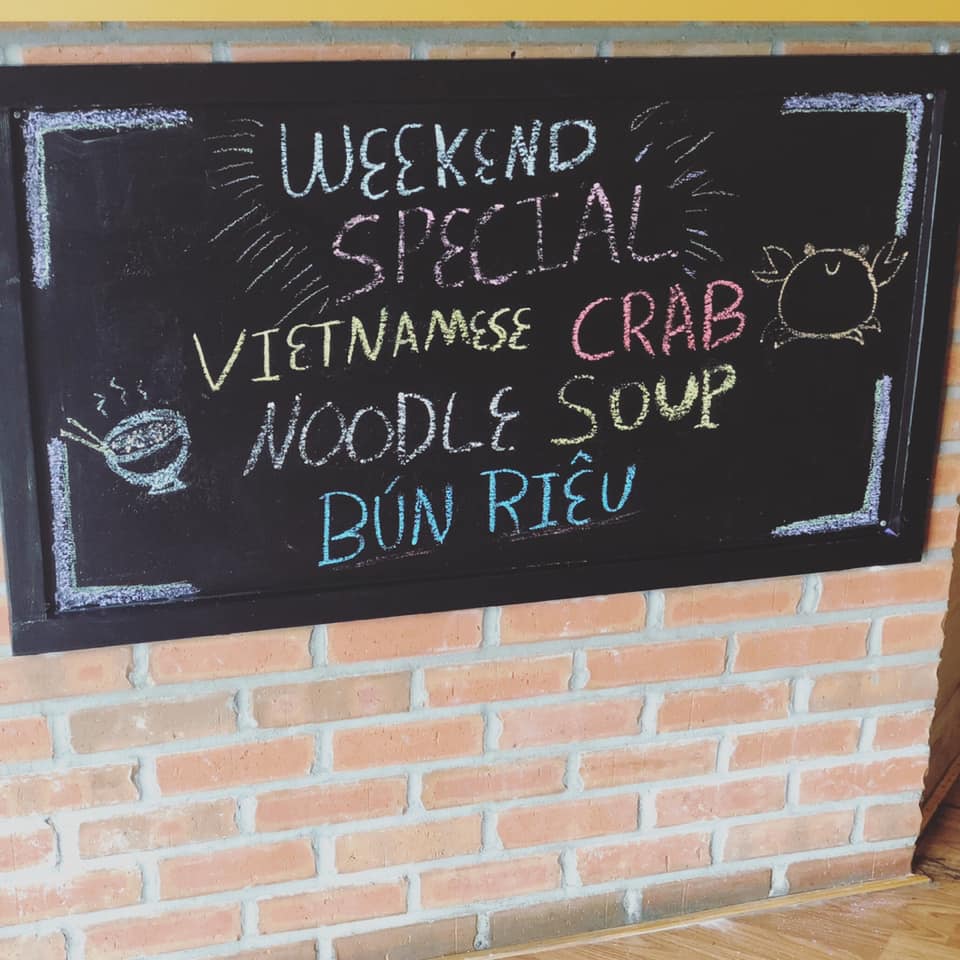 WEEKEND
SPECIAL
VIETNAMESE CRAB
NOODLE SOUP
BÚN RIÊU